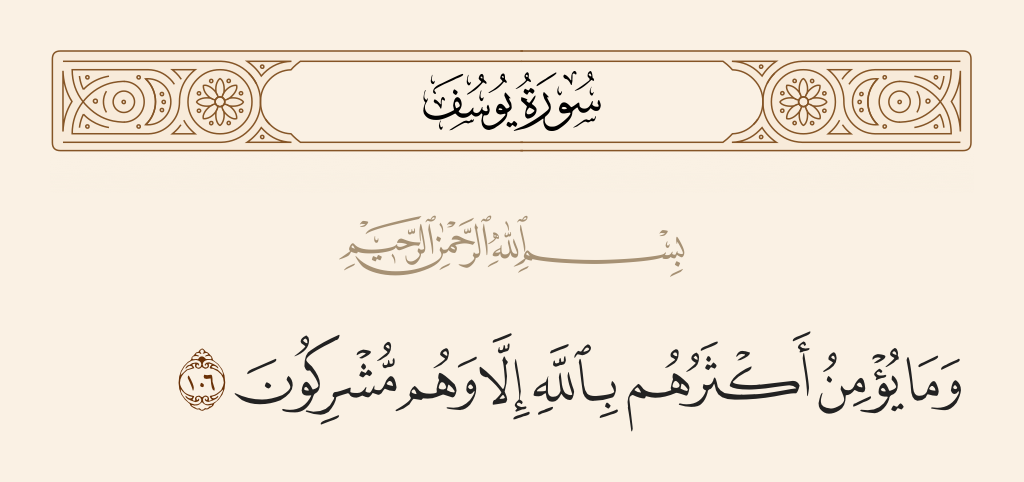 سُورَةُ يُوسُفَ
بِسْمِ ٱللَّهِ ٱلرَّحْمَٰنِ ٱلرَّحِيمِ
وَمَا يُؤْمِنُ أَكْثَرُهُم بِٱللَّهِ إِلَّا وَهُم مُّشْرِكُونَ ١٠٦